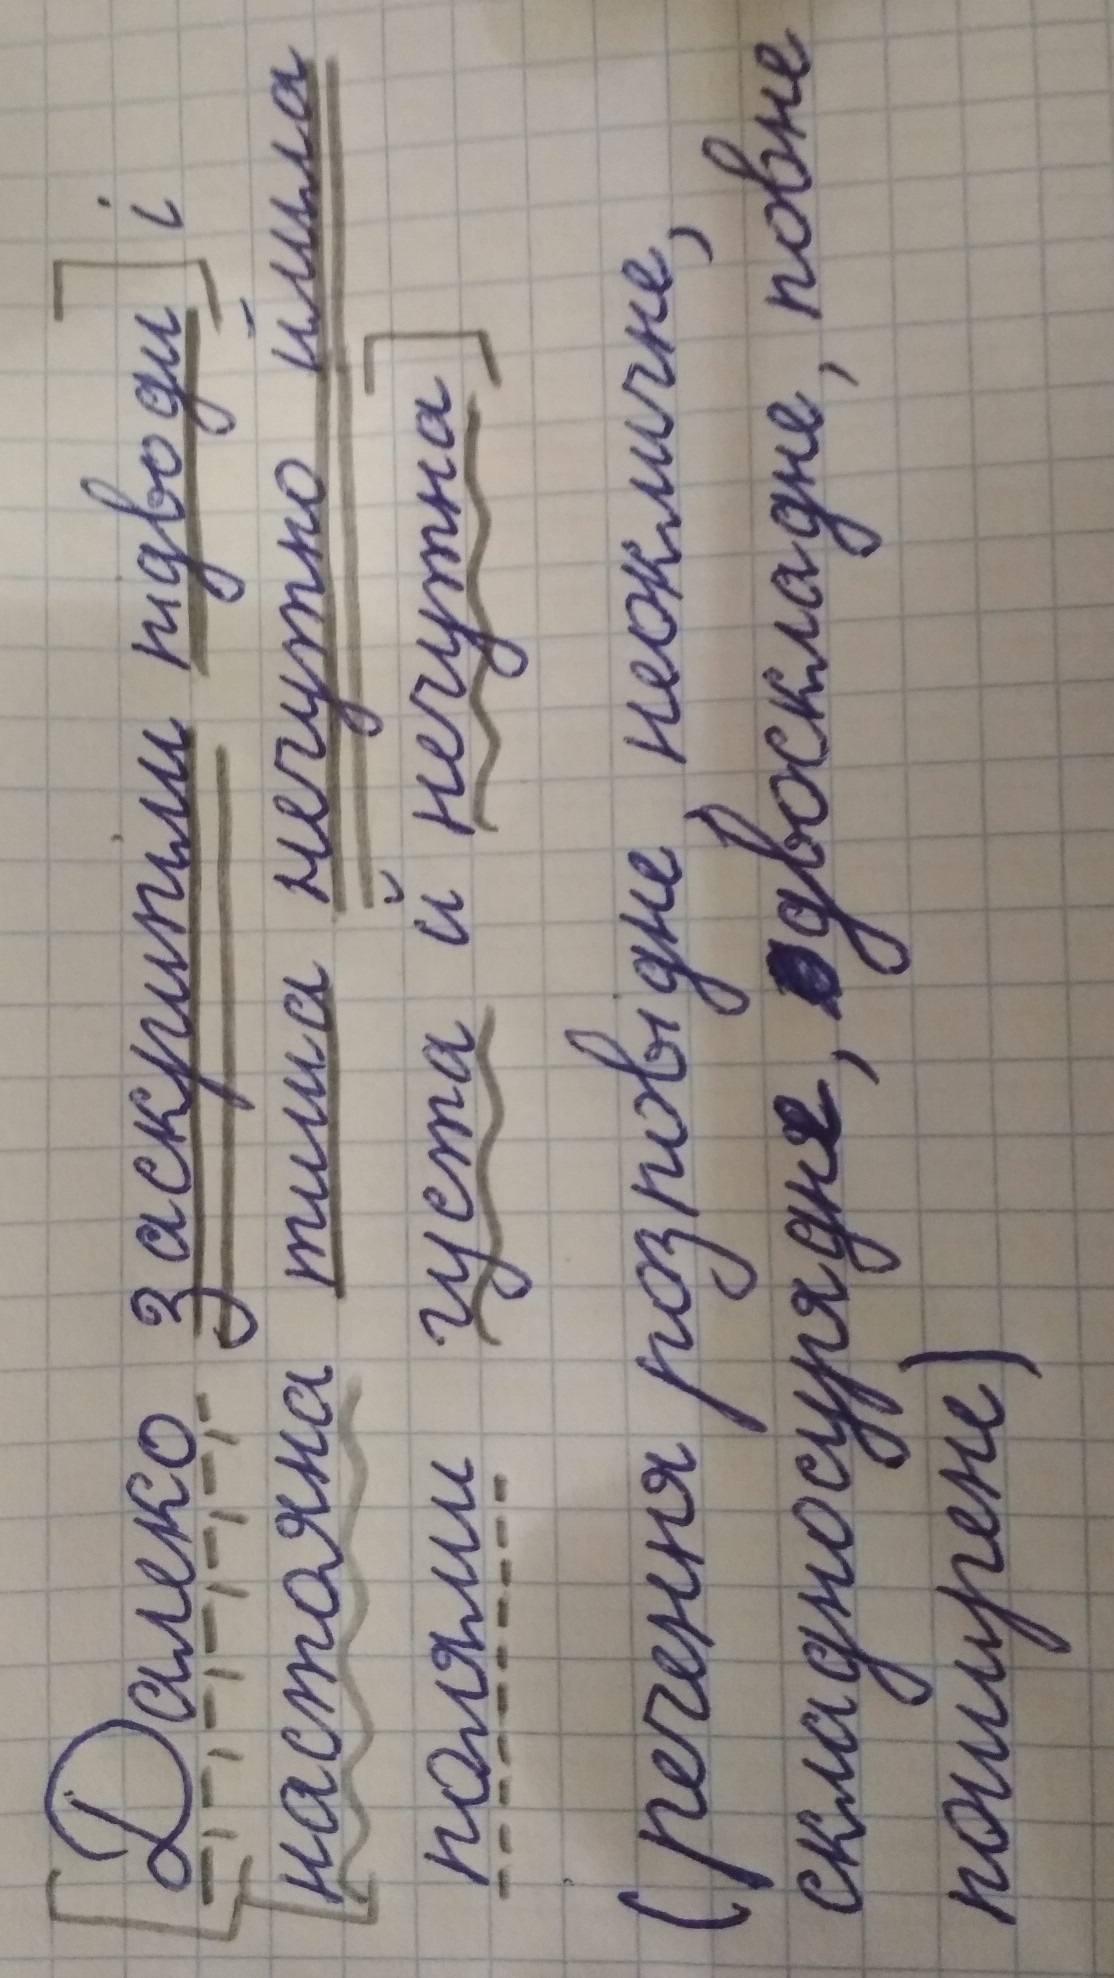 [Далеко заскрипіли підводи] і
[настояна тиша нечутно йшла
полями густа й нечутна]
(речення розповідне неокличне,
складносурядне, двоскладне, повне
поширене)